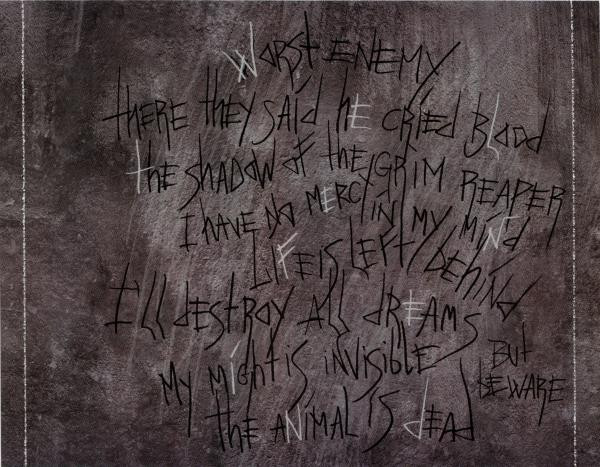 WORST ENEMY
THERE THEY SAID HE CRIED BLOOD
THE SHADOW OF THE GRIM REAPER
I HAVE NO MERCY IN MY MIND
LIFE IS LEFT BEHIND
I'LL DESTROY ALL DREAMS
MY MIGHT IS INVISIBLE BUT BEWARE
THE ANIMAL IS DEAD